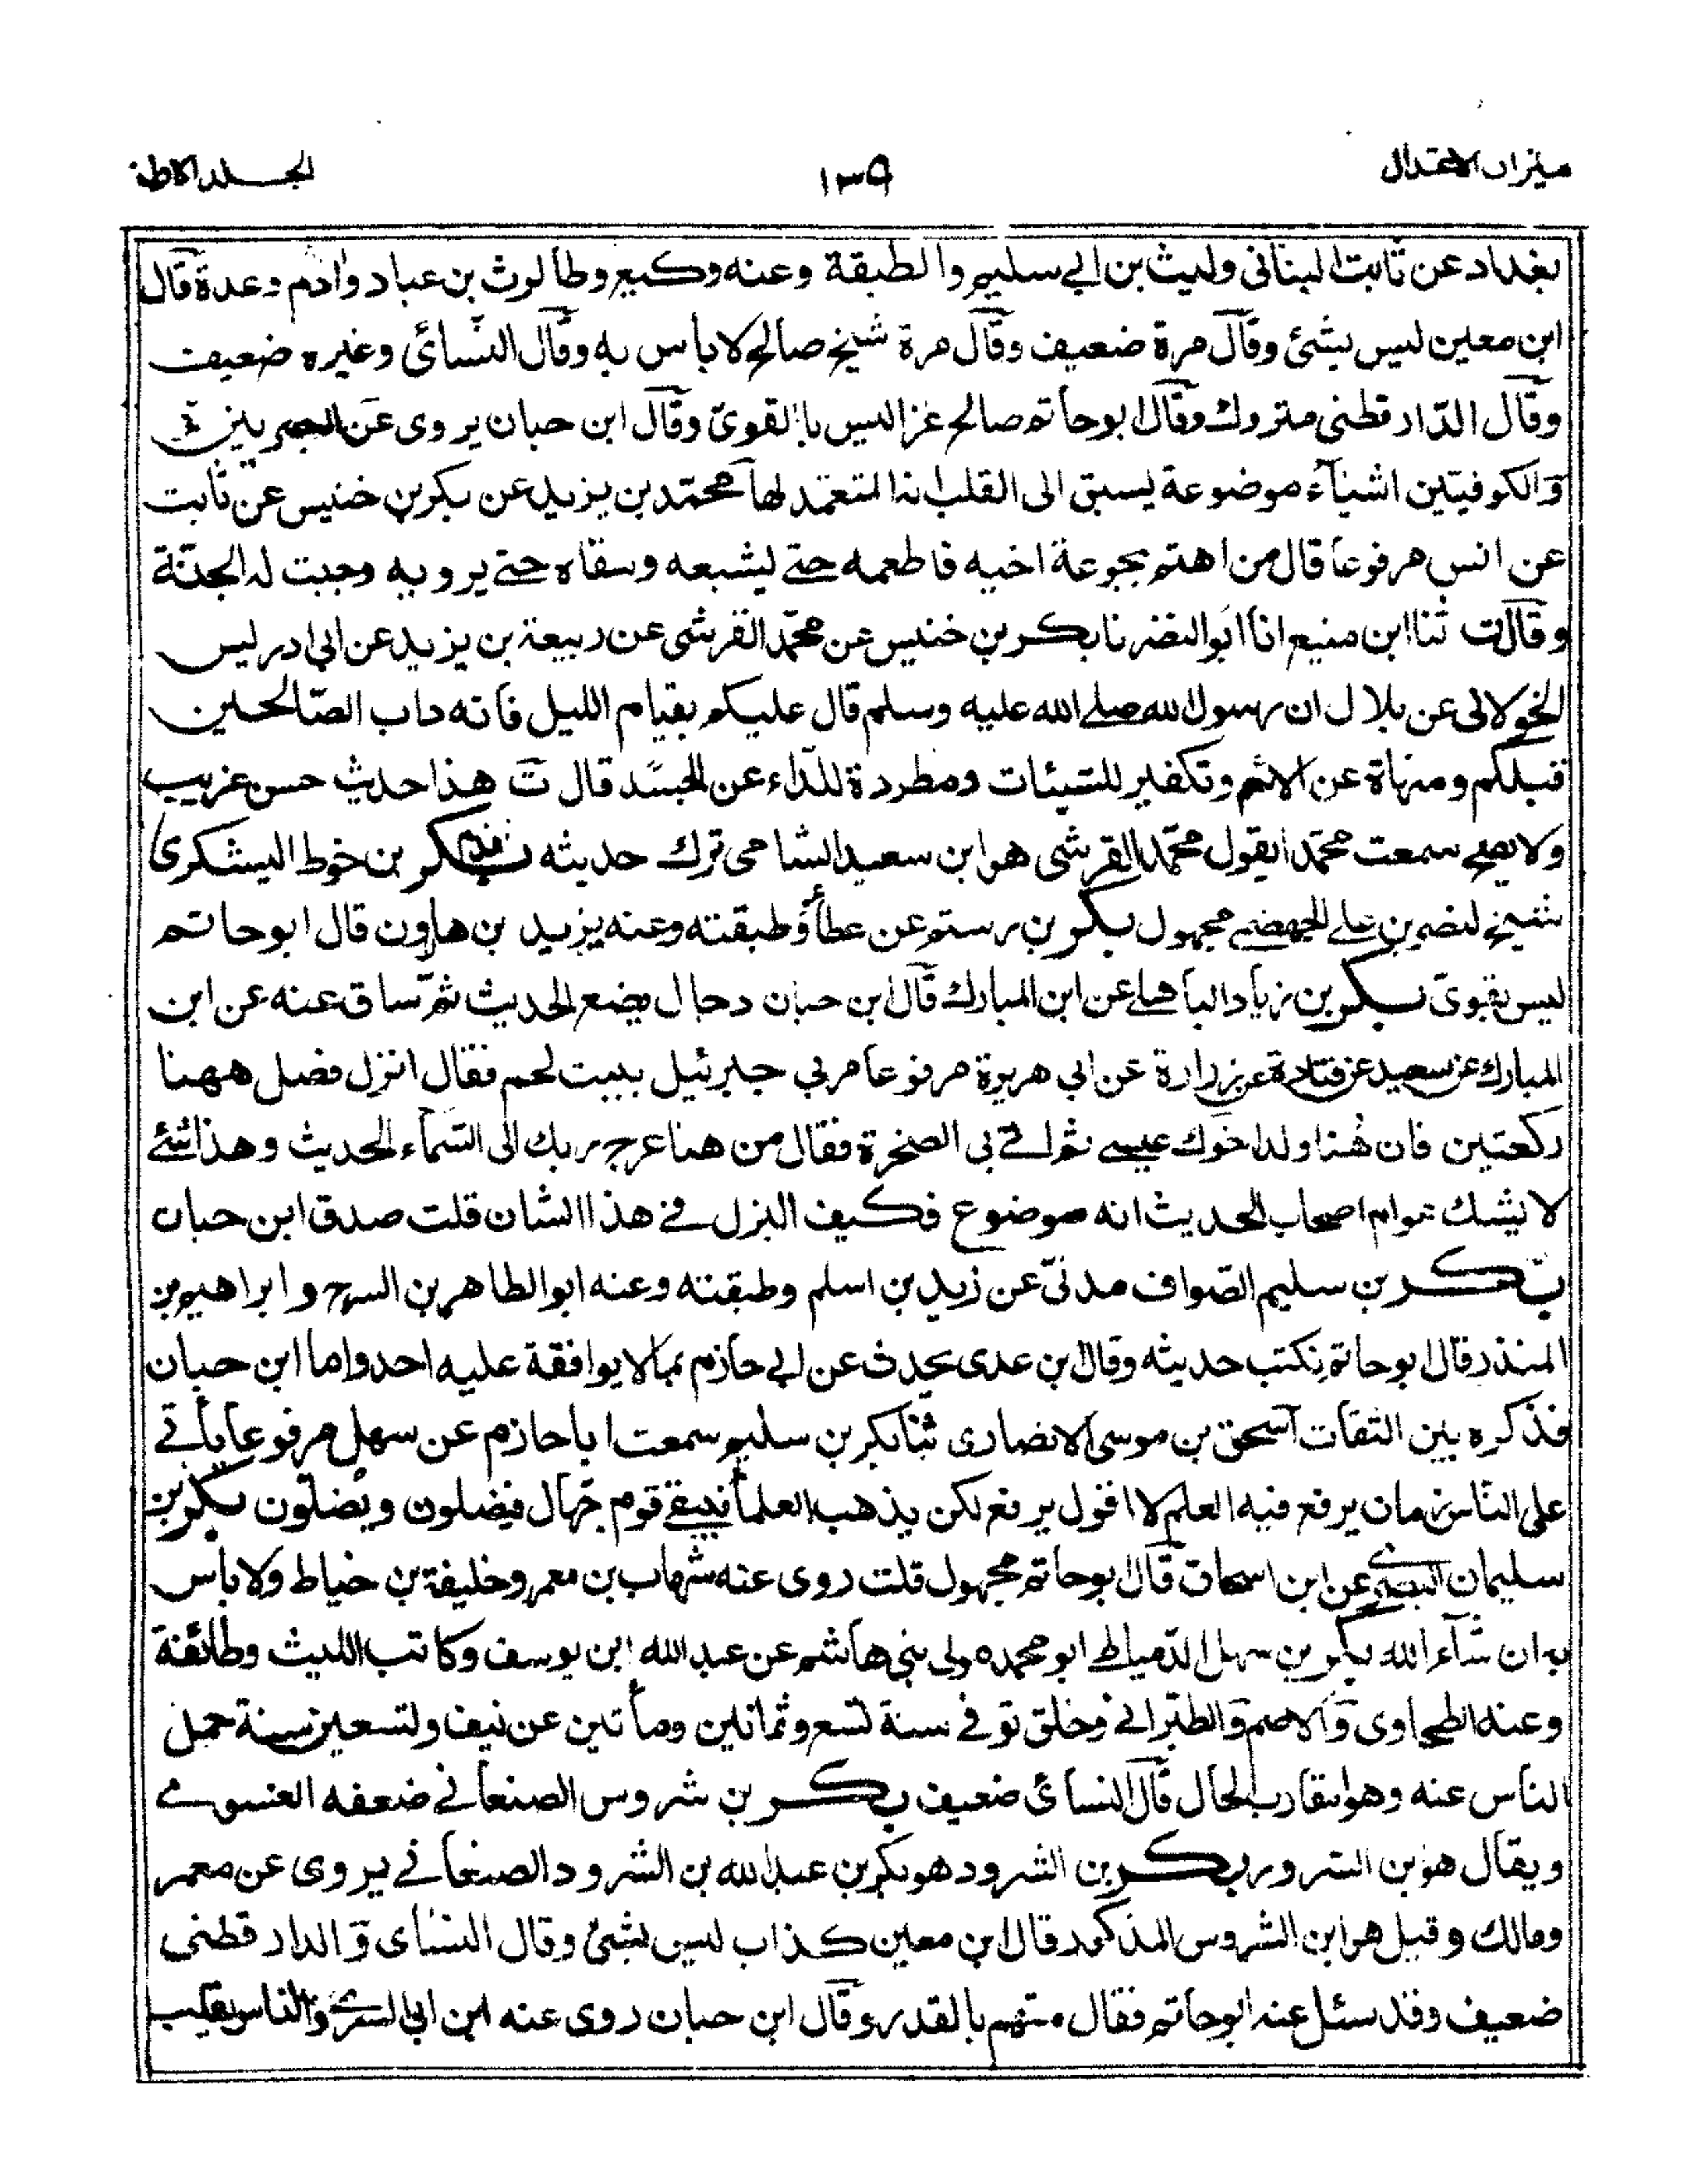 ميزان الاعتدال
١٣٩
الجلد الاول
بغداد عن ثابت البنانى وليث بن ابي سليم والطبقة وعنه وكيع وطالوت بن عباد وآدم وعدة قال
ابن معين ليس بشئ وقال مرة ضعيف وقال مرة شيخ صالح لا بأس به وقال النسائى وغيره ضعيف
وقال الدار قطنى متروك وقال ابو حاتم صالح غزا ليس بالقوى وقال ابن حبان يروى عن البصريين
والكوفيين اشياء موضوعة يسبق الى القلب انه المتعمد لها محمد بن يزيد عن بكر بن خنيس عن ثابت
عن انس مرفوعا قال من اهتم بجوعة اخيه فاطعمه حتى يشبعه وسقاه حتى يرويه وجبت له الجنة
وقال ت ثنا ابن منيع انا ابو النضر نا بكر بن خنيس عن محمد القرشى عن ربيعة بن يزيد عن ابي ادريس
الخولانى عن بلال ان رسول الله صلى الله عليه وسلم قال عليكم بقيام الليل فانه داب الصالحين
قبلكم ومنهاة عن الاثم وتكفير للسيئات ومطردة للداء عن الجسد قال ت هذا حديث حسن غريب
ولا يصح سمعت محمدا يقول محمد القرشى هو ابن سعيد الشامى ترك حديثه بكر بن خوط اليشكرى
شيخ لنصر بن على الجهضمى مجهول بكر بن رستم عن عطاء وطبقته وعنه يزيد بن هارون قال ابو حاتم
ليس بقوى بكر بن زياد الباهلى عن ابن المبارك قال ابن حبان دجال يضع الحديث ثم ساق عنه عن ابن
المبارك عن سعيد عن قتادة عن زرارة عن ابي هريرة مرفوعا مر بي جبرئيل ببيت لحم فقال انزل فصل ههنا
ركعتين فان هنا ولد اخوك عيسى ثم اتى بى الصخرة فقال من هنا عرج ربك الى السماء الحديث وهذا شئ
لا يشك عوام اصحاب الحديث انه موضوع فكيف البزل فى هذا الشان قلت صدق ابن حبان
بكر بن سليم الصواف مدنى عن زيد بن اسلم وطبقته وعنه ابو الطاهر بن السرح و ابراهيم بن
المنذر قال ابو حاتم يكتب حديثه وقال بن عدى يحدث عن ابي حازم بما لا يوافقة عليه احد واما ابن حبان
فذكره بين الثقات اسحق بن موسى الانصارى ثنا بكر بن سليم سمعت ابا حازم عن سهل مرفوعا يأتى
على الناس زمان يرفع فيه العلم لا اقول يرفع لكن يذهب العلماء فيبقى قوم جهال فيضلون ويضلون بكر بن
سليمان البصرى عن ابن اسحاق قال ابو حاتم مجهول قلت روى عنه شهاب بن معمر وخليفة بن خياط ولا بأس
به ان شاء الله بكر بن سهل الدمياطى ابو محمد مولى بنى هاشم عن عبد الله ابن يوسف وكاتب الليث وطائفة
وعنه الطحاوى والاصم والطبرانى وخلق توفى سنة تسع وثمانين ومأتين عن نيف وتسعين سنة حمل
الناس عنه وهو مقارب الحال قال النسائى ضعيف بكر بن شروس الصنعانى ضعفه الفسوى
ويقال هو بن السرور بكر بن الشرود هو بكر بن عبد الله بن الشرود الصنعانى يروى عن معمر
ومالك وقيل هو ابن الشروس المذكور قال ابن معين كذاب ليس بشئ وقال النسائى والدار قطنى
ضعيف وقد سئل عنه ابو حاتم فقال متهم بالقدر وقال ابن حبان روى عنه ابن ابي السرى والناس يقلب